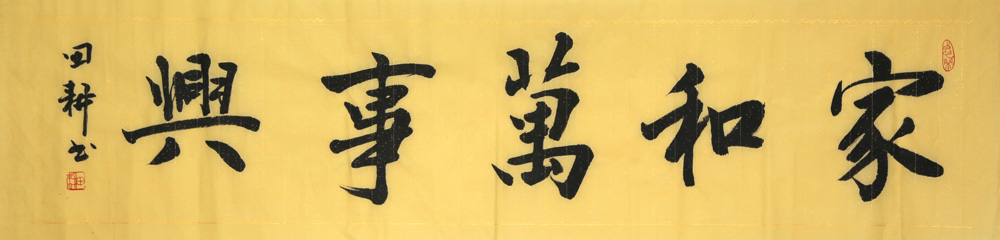 家和萬事興
田耕书